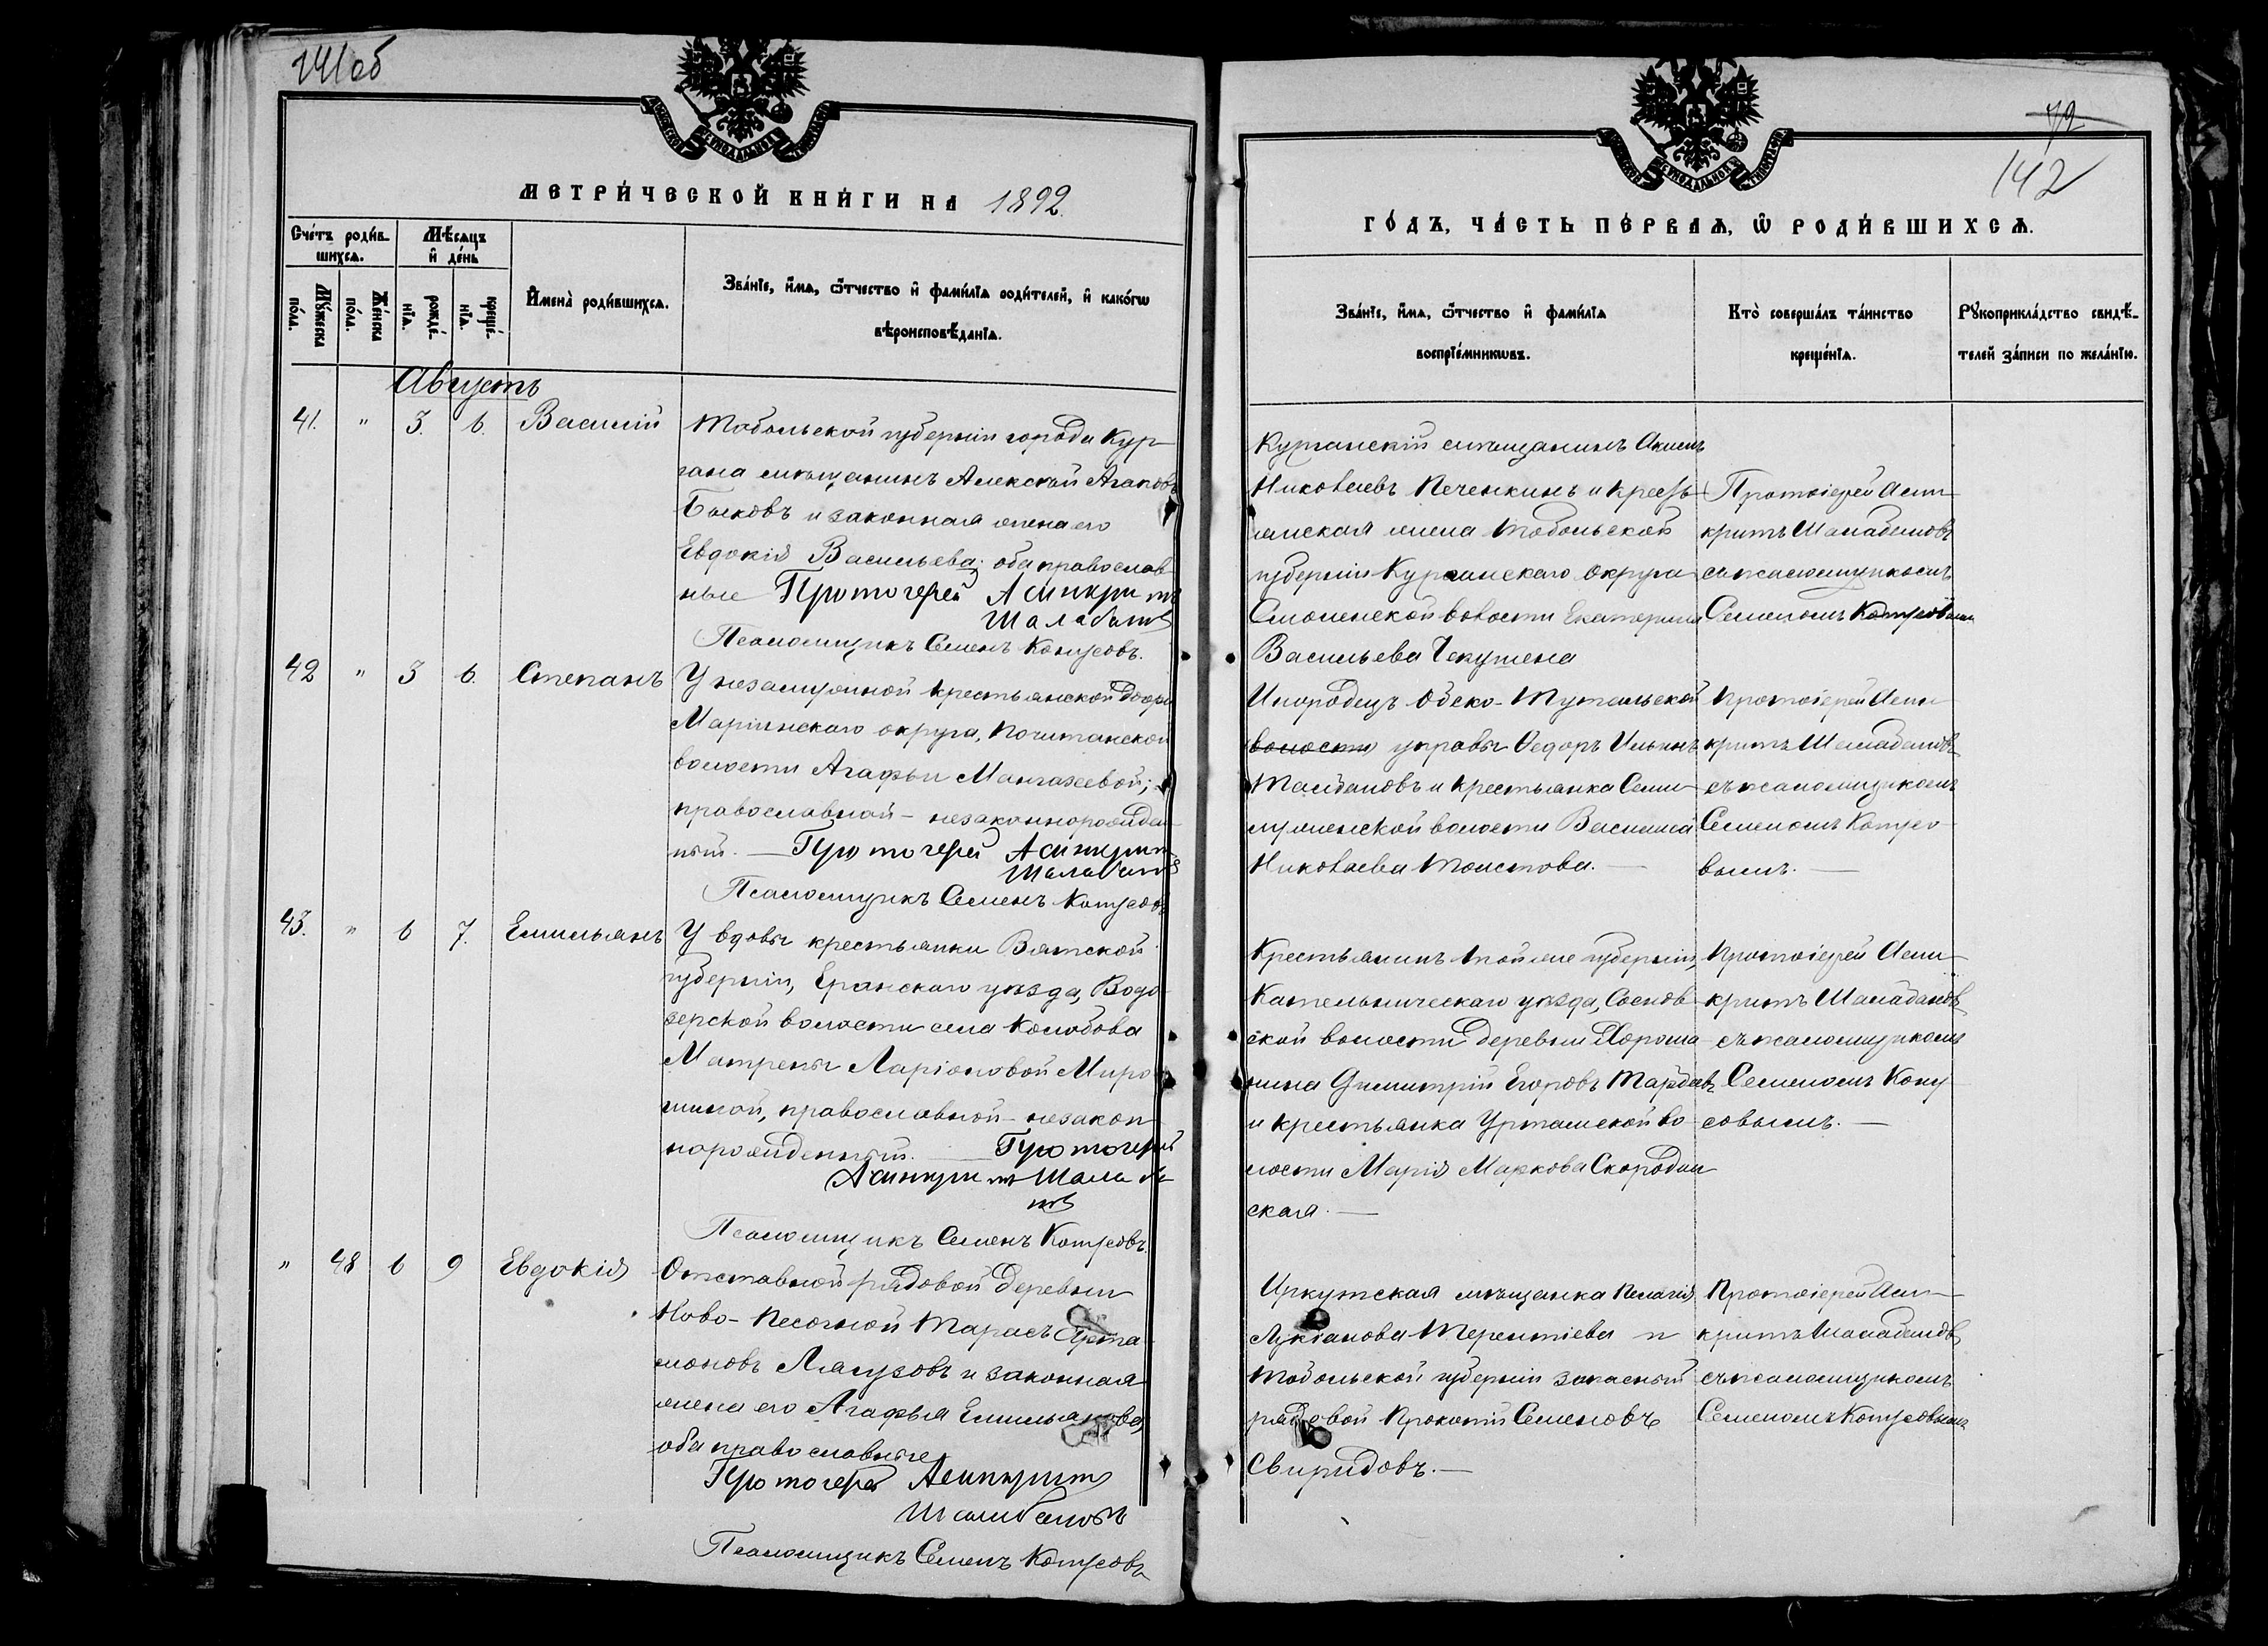 141об
МЕТРИ́ЧЕСКОЙ КНИ́ГИ НА 1892.
Сче́тъ роди́в-
шихся.
Мѣ́сяцъ
и҆ де́нь
Мꙋ́жеска
по́ла.
Же́нска
по́ла.
рожде́-
нїѧ.
креще́-
нїѧ.
И҆мена̀ роди́вшихсѧ.
Зва́нїе, и҆́мѧ, ѻ҆́тчество и҆ фами́лїѧ роди́телей, и҆ како́гѡ
вѣроисповѣ́данїѧ.
Августъ
41. " 3. 6. Василій
Тобольской губерніи города Кур-
гана мѣщанинъ Алексѣй Агаповъ
и законная жена его
Евдокія Васильева; оба православ-
ные Протоіерей Асинкритъ
Шалабановъ
Псаломщикъ Семенъ
42 " 3 6. Степанъ
У незамужной крестьянской дочери
Маріинскаго округа, Почитанской
волости Агафьи Мангазеевой;
православной - незаконнорожден-
ный. — Протоіерей Асинкритъ
Шалабановъ
Псаломщикъ Семенъ
43. " 6 7. Емильянъ
У вдовы крестьянки Вятской
губерніи, Еранскаго уѣзда, Водо-
зерской волости села Колобова
Матрены Ларіоновой Миро-
шиной, православной - незакон-
норожденный. — Протоіерей
Асинкритъ Шалаба-
новъ
Псаломщикъ Семенъ
" 48 6 9 Евдокія
Отставной рядовой деревни
Ново-Песочной Тарасъ Арта-
моновъ и законная
жена его Агафья Емильянова,
оба православные
Протоіерей Асинкритъ
Шалабановъ
Псаломщикъ Семенъ
72
142
ГО́ДЪ, ЧА́СТЬ ПЕ́РВАѦ, Ѽ РОДИ́ВШИХСѦ.
Зва́нїе, и҆́мѧ, ѻ҆́тчество и҆ фами́лїѧ
воспрїе́мникѡвъ.
Кто̀ соверша́лъ та́инство
креще́нїѧ.
Рꙋкоприкла́дство свидѣ́-
телей за́писи по жела́нїю.
Курганскій мѣщанинъ
Николаевъ Печенкинъ и кресть-
янская жена Тобольской
губерніи Курганскаго округа
Смолинской волости Екатерина
Васильева
Протоіерей Асин-
критъ Шалабановъ
съ псаломщикомъ
Семеномъ
Инородецъ Обско-Тутальской
волости управы Ѳедоръ Ильинъ
и крестьянка Семи-
лужненской волости Василиса
Николаева Толстова. —
Протоіерей Асин-
критъ Шалабановъ
съ псаломщикомъ
Семеномъ
вымъ. —
Крестьянинъ той же губерніи,
Котельническаго уѣзда, Соснов-
ской волости деревни
Димитрій Егоровъ
и крестьянка Уртамской во-
лости Марія Маркова Скородин-
ская. —
Протоіерей Асин-
критъ Шалабановъ
съ псаломщикомъ
Семеномъ
совымъ. —
Иркутская мѣщанка Пелагія
Лукіанова Терентіева и
Тобольской губерніи запасный
рядовой Прокопій Семеновъ
Свиридовъ. —
Протоіерей Асин-
критъ Шалабановъ
съ псаломщикомъ
Семеномъ